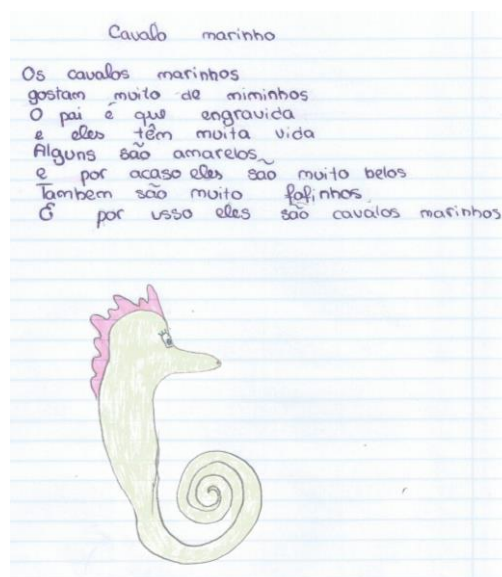 Cavalo marinho
Os cavalos marinhos
gostam muito de miminhos
O pai é que engravida
e eles têm muita vida
Alguns são amarelos
e por acaso eles são muito belos
Tambem são muito fofinhos
É por usso eles são cavalos marinhos